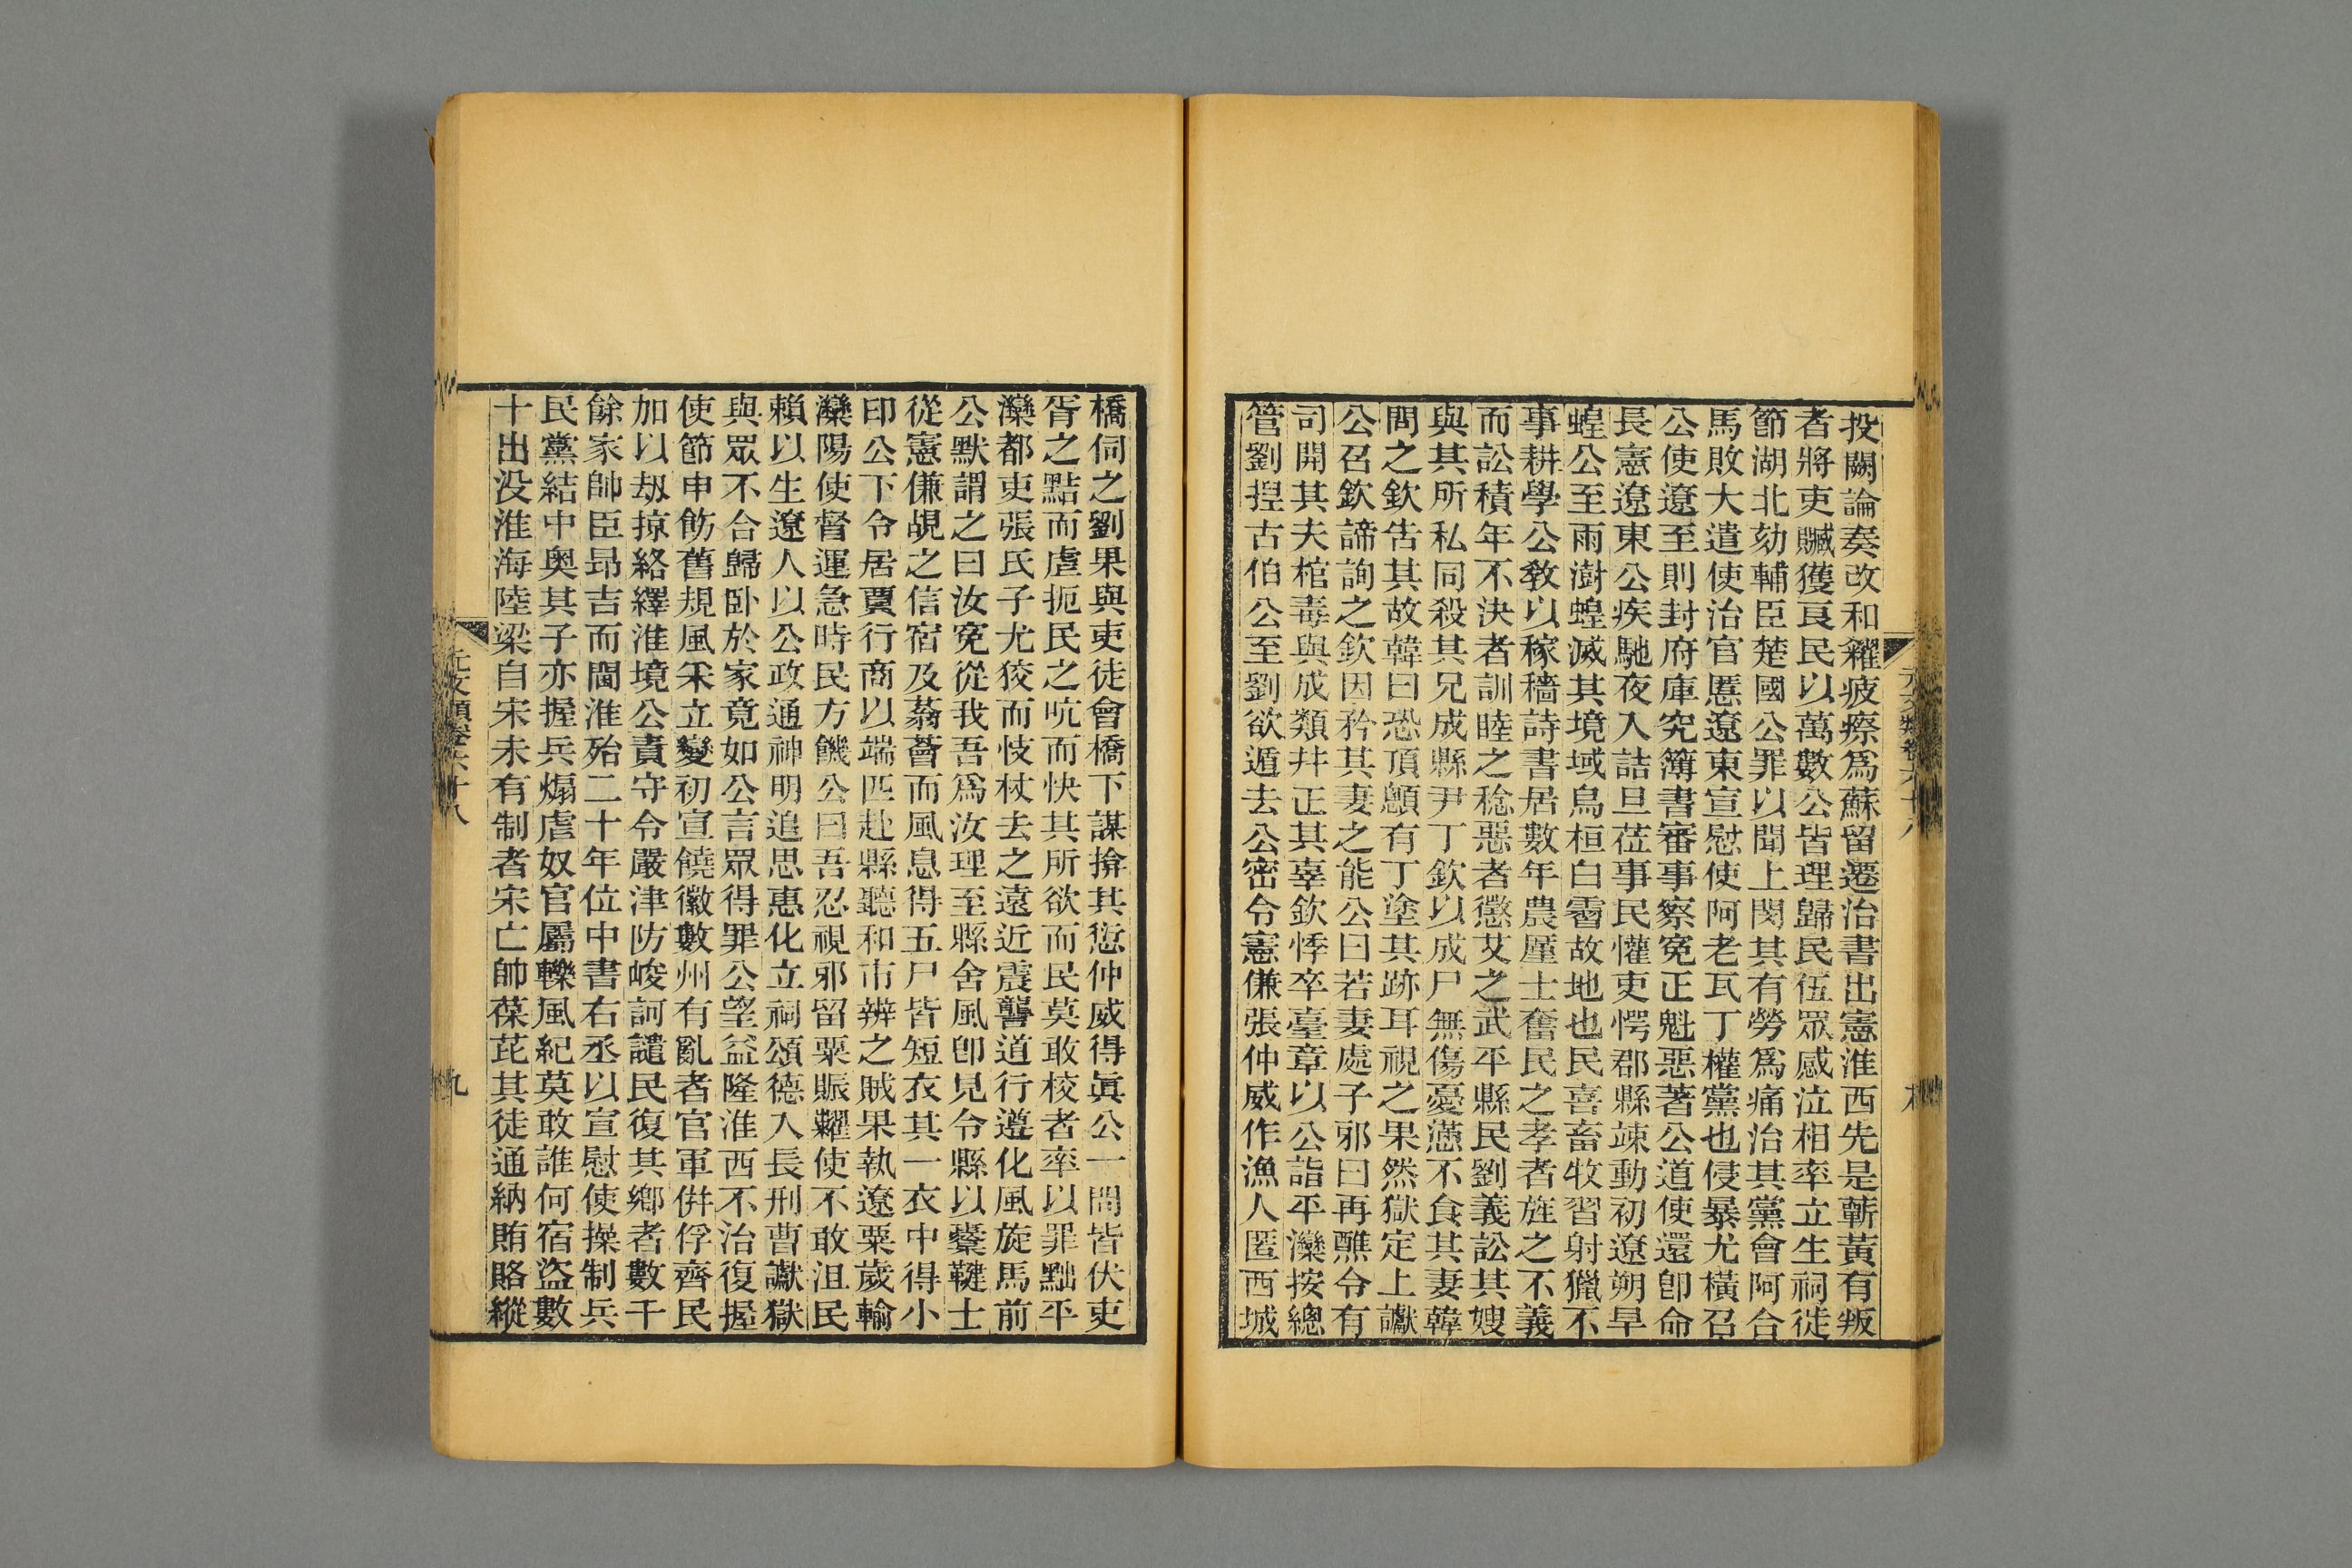 投闕論奏改和糴疲瘵爲蘇留遷治書出憲淮西先是蘄黃有叛
者將吏贓獲良民以萬數公皆理歸民伍眾感泣相率立生祠徙
節湖北劾輔臣楚國公罪以聞上閔其有勞爲痛治其黨會阿合
馬敗大遣使治官慝遼東宣慰使阿老瓦丁權黨也侵暴尤橫召
公使遼至則封府庫究簿書審事察冤正魁惡著公道使還卽命
長憲遼東公疾馳夜入詰旦莅事民懽吏愕郡縣竦動初遼朔旱
蝗公至雨澍蝗滅其境域烏桓白霫故地也民喜畜牧習射獵不
事耕學公敎以稼穡詩書居數年農厪士奮民之孝者旌之不義
而訟積年不決者訓睦之稔惡者懲艾之武平縣民劉義訟其嫂
與其所私同殺其兄成縣尹丁欽以成尸無傷憂懣不食其妻韓
問之欽告其故韓曰恐頂顖有丁塗其跡耳視之果然獄定上讞
公召欽諦詢之欽因矜其妻之能公曰若妻處子邪曰再醮令有
司開其夫棺毒與成類幷正其辜欽悸卒臺章以公詣平灤按總
管劉揑古伯公至劉欲遁去公密令憲傔張仲威作漁人匿西城
橋伺之劉果與吏徒會橋下謀揜其愆仲威得眞公一問皆伏吏
胥之點而虐扼民之吭而快其所欲而民莫敢校者率以罪黜平
灤都吏張氏子尤狡而忮杖去之遠近震讋道行遵化風旋馬前
公默謂之曰汝冤從我吾爲汝理至縣舍風卽見令縣以櫜鞬士
從憲傔覘之信宿及蓊薈而風息得五尸皆短衣其一衣中得小
印公下令居賈行商以端匹赴縣聽和市辨之賊果執遼粟歲輸
灤陽使督運急時民方饑公曰吾忍視邪留粟賑糶使不敢沮民
賴以生遼人以公政通神明追思惠化立祠頌德入長刑曹讞獄
與眾不合歸卧於家竟如公言眾得罪公望益隆淮西不治復握
使節申飭舊規風采立變初宣饒徽數州有亂者官軍倂俘齊民
加以刼掠絡繹淮境公責守令嚴津防峻訶譴民復其鄉者數千
餘家帥臣昂吉而閫淮殆二十年位中書右丞以宣慰使操制兵
民黨結中奥其子亦握兵煽虐奴官屬轢風紀莫敢誰何宿盜數
十出没淮海陸梁自宋未有制者宋亡帥葆芘其徒通納賄賂縱
元文類卷六十八
九